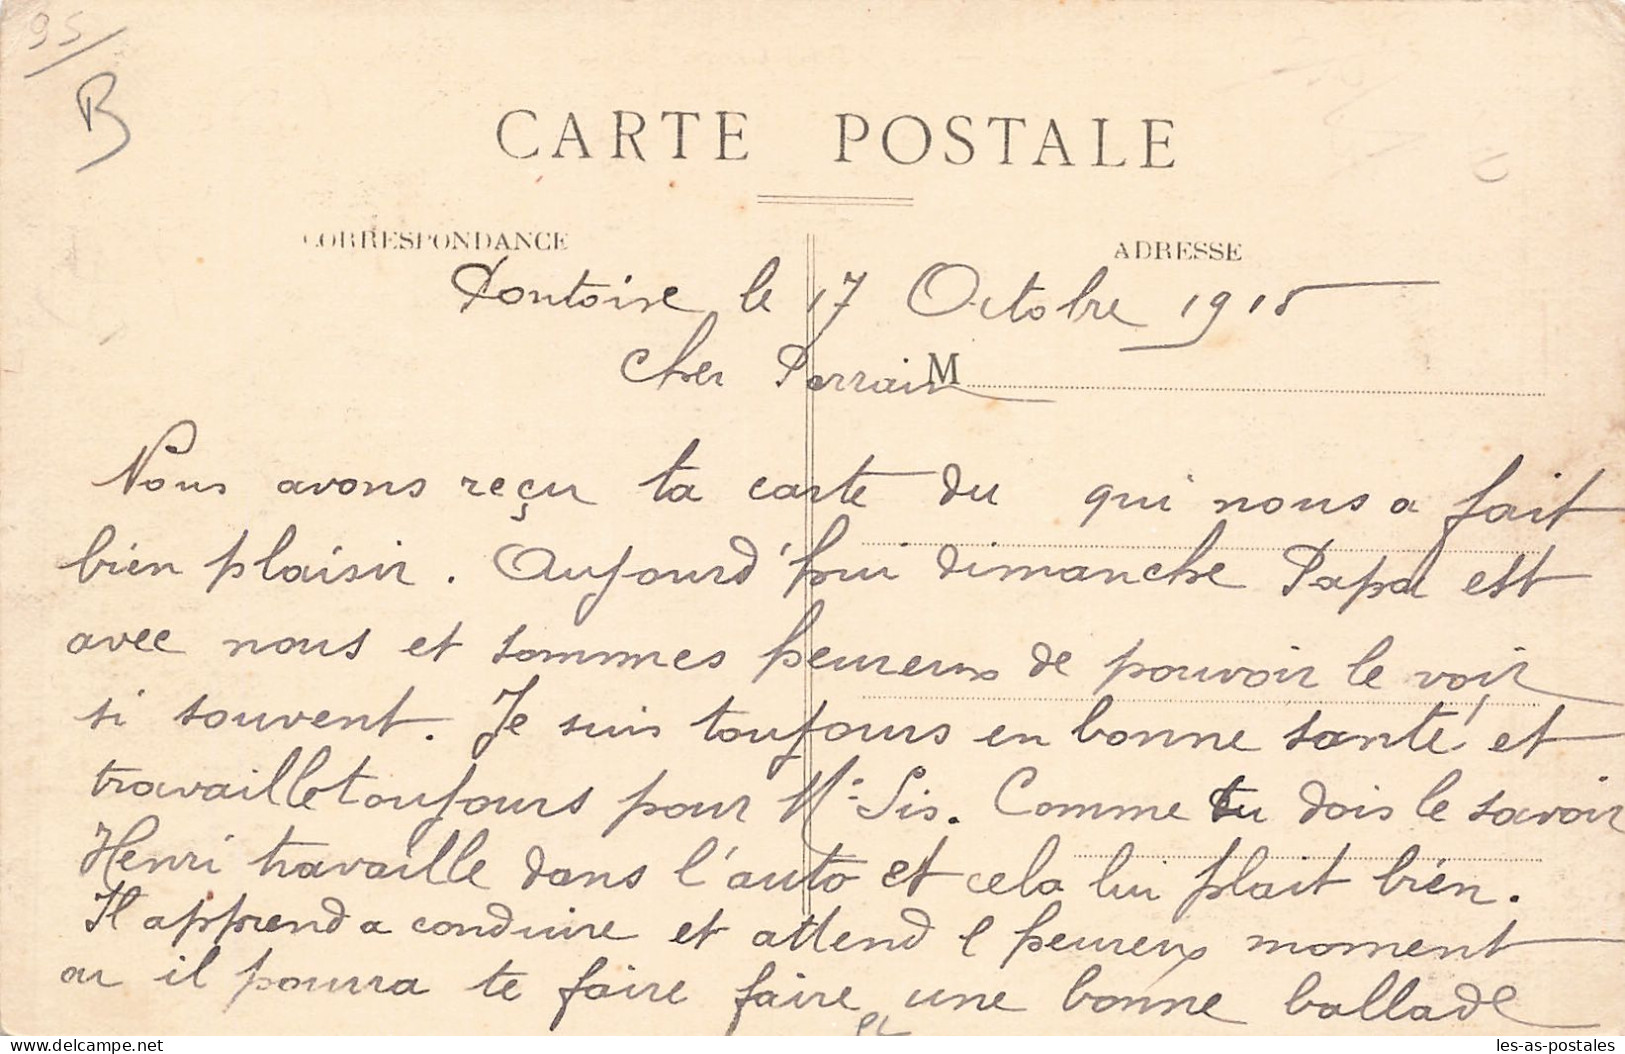 95/
B
CARTE POSTALE
CORRESPONDANCE
ADRESSE
Pontoise le 17 Octobre 1915
Cher Parrain
M
Nous avons reçu ta carte du qui nous a fait
bien plaisir. Aujourd'hui dimanche Papa est
avec nous et sommes heureux de pouvoir le voir
si souvent. Je suis toujours en bonne santé et
travaille toujours pour Mr Sis. Comme tu dois le savoir
Henri travaille dans l'auto et cela lui plait bien.
Il apprend a conduire et attend l heureux moment
ou il pourra te faire faire une bonne ballade
delcampe.net
les-as-postales